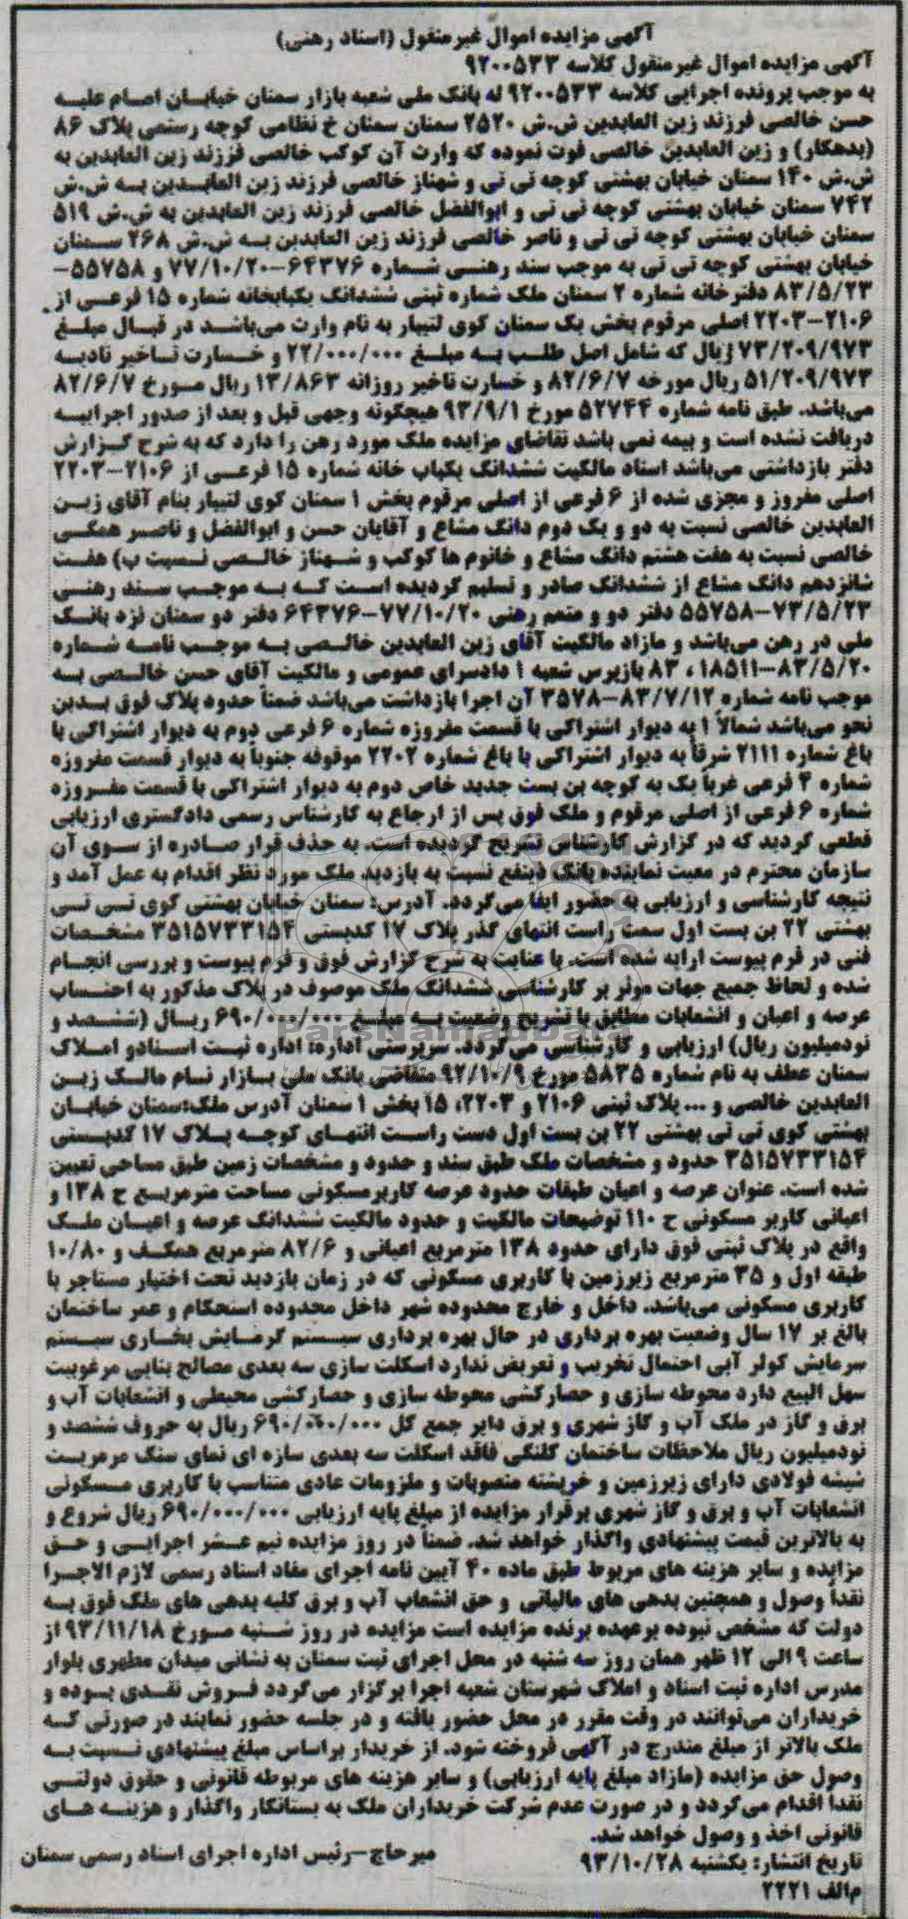 آگهی مزایده اموال غیرمنقول (اسناد رهنی)
آگهی مزایده اموال غیرمنقول کلاسه ۹۲۰۰۵۳۳
به موجب پرونده اجرایی کلاسه ۹۲۰۰۵۳۳ له بانک ملی شعبه بازار سمنان خیابان امام علیه
حسن خالصی فرزند زین العابدین ش.ش ۲۵۲۰ سمنان سمنان خ نظامی کوچه رستمی پلاک ۸۶
(بدهکار) و زین العابدین خالصی فوت نموده که وارث آن کوکب خالصی فرزند زین العابدین به
ش.ش ۱۴۰ سمنان خیابان بهشتی کوچه تی تی و شهناز خالصی فرزند زین العابدین به ش.ش
۷۴۲ سمنان خیابان بهشتی کوچه تی تی و ابوالفضل خالصی فرزند زین العابدین به ش.ش ۵۱۹
سمنان خیابان بهشتی کوچه تی تی و ناصر خالصی فرزند زین العابدین به ش.ش ۲۶۸ سمنان
خیابان بهشتی کوچه تی تی به موجب سند رهنی شماره ۶۴۳۷۶-۷۷/۱۰/۲۰ و ۵۵۷۵۸-
۸۳/۵/۲۳ دفترخانه شماره ۲ سمنان ملک شماره ثبتی ششدانگ یکبابخانه شماره ۱۵ فرعی از
۲۱۰۶-۲۲۰۳ اصلی مرقوم بخش یک سمنان کوی لتیبار به نام وارث می‌باشد در قبال مبلغ
۷۳/۲۰۹/۹۷۳ ریال که شامل اصل طلب به مبلغ ۲۲/۰۰۰/۰۰۰ و خسارت تاخیر تادیه
۵۱/۲۰۹/۹۷۳ ریال مورخه ۸۲/۶/۷ و خسارت تاخیر روزانه ۱۳/۸۶۳ ریال مورخ ۸۲/۶/۷
می‌باشد. طبق نامه شماره ۵۲۷۴۴ مورخ ۹۳/۹/۱ هیچگونه وجهی قبل و بعد از صدور اجراییه
دریافت نشده است و بیمه نمی باشد تقاضای مزایده ملک مورد رهن را دارد که به شرح گزارش
دفتر بازداشتی می‌باشد اسناد مالکیت ششدانگ یکباب خانه شماره ۱۵ فرعی از ۲۱۰۶-۲۲۰۳
اصلی مفروز و مجزی شده از ۶ فرعی از اصلی مرقوم بخش ۱ سمنان کوی لتیبار بنام آقای زین
العابدین خالصی نسبت به دو و یک دوم دانگ مشاع و آقایان حسن و ابوالفضل و ناصر همکی
خالصی نسبت به هفت هشتم دانگ مشاع و خانوم ها کوکب و شهناز خالصی نسبت ب) هفت
شانزدهم دانگ مشاع از ششدانگ صادر و تسلیم گردیده است که به موجب سند رهنی
۷۳/۵/۲۳-۵۵۷۵۸ دفتر دو و متمم رهنی ۷۷/۱۰/۲۰-۶۴۳۷۶ دفتر دو سمنان نزد بانک
ملی در رهن می‌باشد و مازاد مالکیت آقای زین العابدین خالصی به موجب نامه شماره
۸۳/۵/۲۰-۱۸۵۱۱، ۸۳ بازپرس شعبه ۱ دادسرای عمومی و مالکیت آقای حسن خالصی به
موجب نامه شماره ۸۳/۷/۱۲-۳۵۷۸ آن اجرا بازداشت می‌باشد ضمناً حدود پلاک فوق بدین
نحو می‌باشد شمالاً ۱ به دیوار اشتراکی با قسمت مفروزه شماره ۶ فرعی دوم به دیوار اشتراکی با
باغ شماره ۲۱۱۱ شرقاً به دیوار اشتراکی با باغ شماره ۲۲۰۲ موقوفه جنوباً به دیوار قسمت مفروزه
شماره ۴ فرعی غرباً یک به کوچه بن بست جدید خاص دوم به دیوار اشتراکی با قسمت مفروزه
شماره ۶ فرعی از اصلی مرقوم و ملک فوق پس از ارجاع به کارشناس رسمی دادگستری ارزیابی
قطعی گردید که در گزارش کارشناس تشریح گردیده است. به حذف قرار صادره از سوی آن
سازمان محترم در معیت نماینده بانک ذینفع نسبت به بازدید ملک مورد نظر اقدام به عمل آمد و
نتیجه کارشناسی و ارزیابی به حضور ایفا می‌گردد. آدرس: سمنان خیابان بهشتی کوی تی تی
بهشتی ۲۲ بن بست اول سمت راست انتهای گذر پلاک ۱۷ کدپستی ۳۵۱۵۷۳۳۱۵۴ مشخصات
فنی در فرم پیوست ارایه شده است. با عنایت به شرح گزارش فوق و فرم پیوست و بررسی انجام
شده و لحاظ جمیع جهات موثر بر کارشناسی ششدانگ ملک موصوف در پلاک مذکور به احتساب
عرصه و اعیان و انشعابات مطابق با تشریح وضعیت به مبلغ ۶۹۰/۰۰۰/۰۰۰ ریال (ششصد و
نودمیلیون ریال) ارزیابی و کارشناسی می‌گردد. سرپرستی اداره: اداره ثبت اسنادو املاک
سمنان عطف به نام شماره ۵۸۳۵ مورخ ۹۲/۱۰/۹ متقاضی بانک ملی بازار نام مالک زین
العابدین خالصی و ... پلاک ثبتی ۲۱۰۶ و ۲۲۰۳، ۱۵ بخش ۱ سمنان آدرس ملک:سمنان خیابان
بهشتی کوی تی تی بهشتی ۲۲ بن بست اول دست راست انتهای کوچه پلاک ۱۷ کدپستی
۳۵۱۵۷۳۳۱۵۴ حدود و مشخصات ملک طبق سند و حدود و مشخصات زمین طبق مساحی تعیین
شده است. عنوان عرصه و اعیان طبقات حدود عرصه کاربرمسکونی مساحت مترمربع ح ۱۳۸ و
اعیانی کاربر مسکونی ح ۱۱۰ توضیحات مالکیت و حدود مالکیت ششدانگ عرصه و اعیان ملک
واقع در پلاک ثبتی فوق دارای حدود ۱۳۸ مترمربع اعیانی و ۸۲/۶ مترمربع همکف و ۱۰/۸۰
طبقه اول و ۳۵ مترمربع زیرزمین با کاربری مسکونی که در زمان بازدید تحت اختیار مستاجر با
کاربری مسکونی می‌باشد. داخل و خارج محدوده شهر داخل محدوده استحکام و عمر ساختمان
بالغ بر ۱۷ سال وضعیت بهره برداری در حال بهره برداری سیستم گرمایش بخاری سیستم
سرمایش کولر آبی احتمال تخریب و تعریض ندارد اسکلت سازی سه بعدی مصالح بنایی مرغوبیت
سهل البیع دارد محوطه سازی و حصارکشی محوطه سازی و حصارکشی محیطی و انشعابات آب و
برق و گاز در ملک آب و گاز شهری و برق دایر جمع کل ۶۹۰/۰۰۰/۰۰۰ ریال به حروف ششصد و
نودمیلیون ریال ملاحظات ساختمان کلنگی فاقد اسکلت سه بعدی سازه ای نمای سنگ مرمریت
شیشه فولادی دارای زیرزمین و خرپشته منصوبات و ملزومات عادی متناسب با کاربری مسکونی
انشعابات آب و برق و گاز شهری برقرار مزایده از مبلغ پایه ارزیابی ۶۹۰/۰۰۰/۰۰۰ ریال شروع و
به بالاترین قیمت پیشنهادی واگذار خواهد شد. ضمناً در روز مزایده نیم عشر اجرایی و حق
مزایده و سایر هزینه های مربوط طبق ماده ۴۰ آیین نامه اجرای مفاد اسناد رسمی لازم الاجرا
نقداً وصول و همچنین بدهی های مالیاتی و حق انشعاب آب و برق کلیه بدهی های ملک فوق به
دولت که مشخص نبوده برعهده برنده مزایده است مزایده در روز شنبه مورخ ۹۳/۱۱/۱۸ از
ساعت ۹ الی ۱۲ ظهر همان روز سه شنبه در محل اجرای ثبت سمنان به نشانی میدان مطهری بلوار
مدرس اداره ثبت اسناد و املاک شهرستان شعبه اجرا برگزار می‌گردد فروش نقدی بوده و
خریداران می‌توانند در وقت مقرر در محل حضور یافته و در جلسه حضور نمایند در صورتی که
ملک بالاتر از مبلغ مندرج در آگهی فروخته شود. از خریدار براساس مبلغ پیشنهادی نسبت به
وصول حق مزایده (مازاد مبلغ پایه ارزیابی) و سایر هزینه های مربوطه قانونی و حقوق دولتی
نقداً اقدام می‌گردد و در صورت عدم شرکت خریداران ملک به بستانکار واگذار و هزینه های
قانونی اخذ و وصول خواهد شد.
میرحاج-رئیس اداره اجرای اسناد رسمی سمنان
تاریخ انتشار: یکشنبه ۹۳/۱۰/۲۸
م‌الف ۲۲۲۱
ParsNamadData